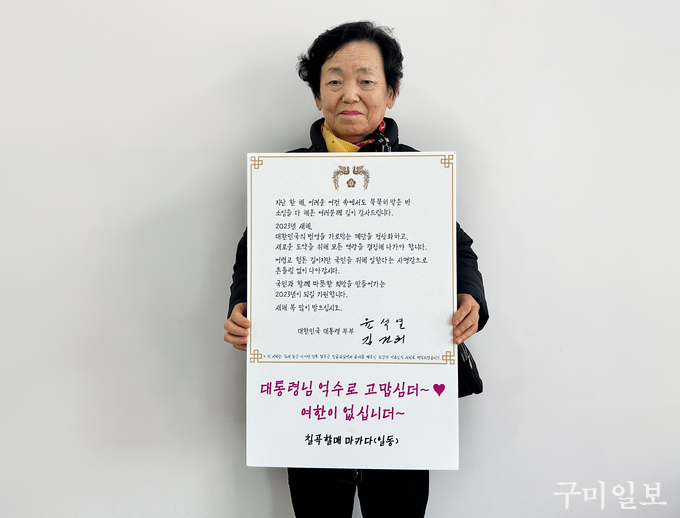 지난 한 해, 어려운 여건 속에서도 묵묵히 맡은 바
소임을 다 해온 여러분께 깊이 감사드립니다.
2023년 새해,
대한민국의 번영을 가로막는 폐단을 정상화하고,
새로운 도약을 위해 모든 역량을 결집해 나가야 합니다.
어렵고 힘든 길이지만 국민을 위해 일한다는 사명감으로
흔들림 없이 나아갑시다.
국민과 함께 따뜻한 희망을 만들어가는
2023년이 되길 기원합니다.
새해 복 많이 받으십시오.
대한민국 대통령 부부 윤석열
김건희
대통령님 억수로 고맙심더~ ♥
여한이 없심니더~
칠곡할매 마카다(일동)
구미일보